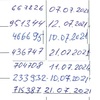 667826 07.07.2021
951344 12.07.2021
466695 10.07.2021
436747 21.07.2021
704708 11.07.2021
233932 10.07.2021
715387 21.07.2021